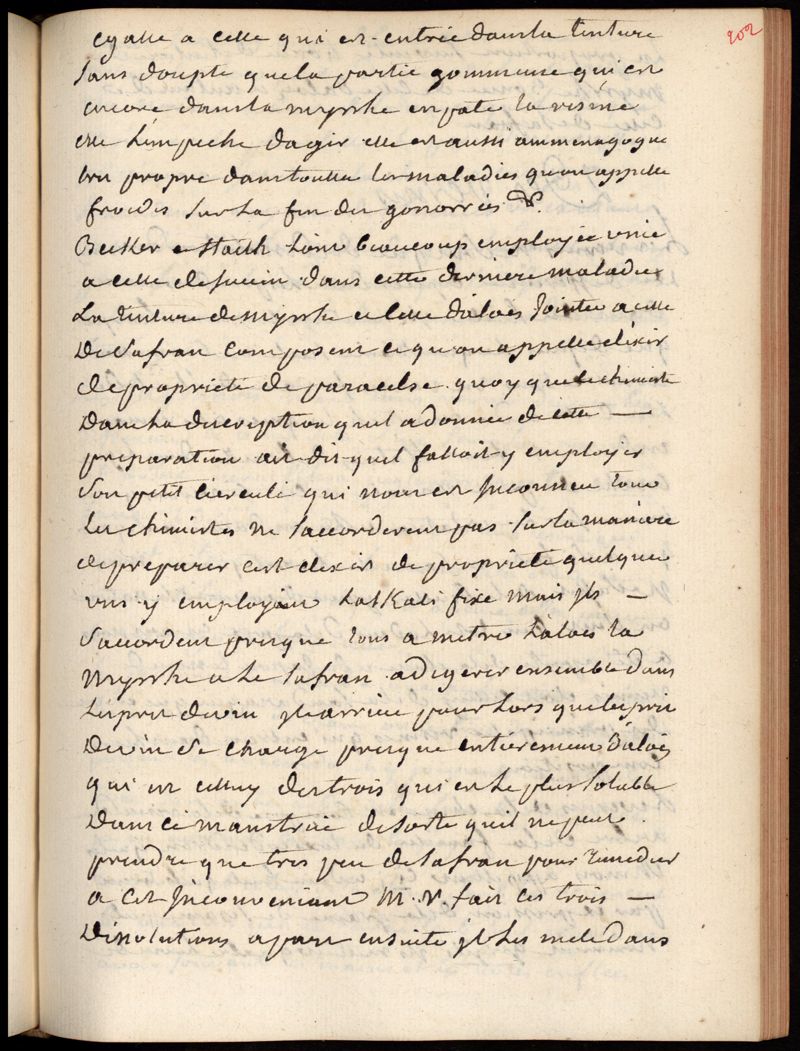 202
egalle a celle qui est entrée dans la tinture
sans doupte que la partie gommeuse qui est
encore dans la myrrhe enpate la resine
elle l'empeche dagir elle est aussi ammenagogue
bru propre dans toutte les maladies quon appelle
froides sur la fin des gonorrées V.
Becker e Stalh l'ont beaucoup employée unie
a celle de sucin dans cette derniere maladie
La tinture de myrrhe et celle d'aloes jointe a celle
De Safran composent ce qu'on appelle elixir
de proprieté de paracelse quoy que ce chimiste
Dans la description qu'il a donnée de cette —
preparation ait dit quil falloit y employer
son petit circulé qui nous est Inconneu tous
Les chimistes ne s'accorderent pas sur la maniere
de preparer cest elexir de proprieté quelques
uns y employent L'alkali fixe mais jls —
s'accordent presque tous a metre l'aloes la
myrrhe et le safran a digerer ensemble dans
L'esprit de vin jl arrive pour lors que l'esprit
De vin se charge presque entierement d'aloes
qui est celluy des trois qui est le plus soluble
Dans ce manstrue de sorte quil ne peut
prendre que tres peu de safran pour remedier
a cet Inconveniant M. r. fait ces trois —
Dissolutions apart ensuite jl les mele dans